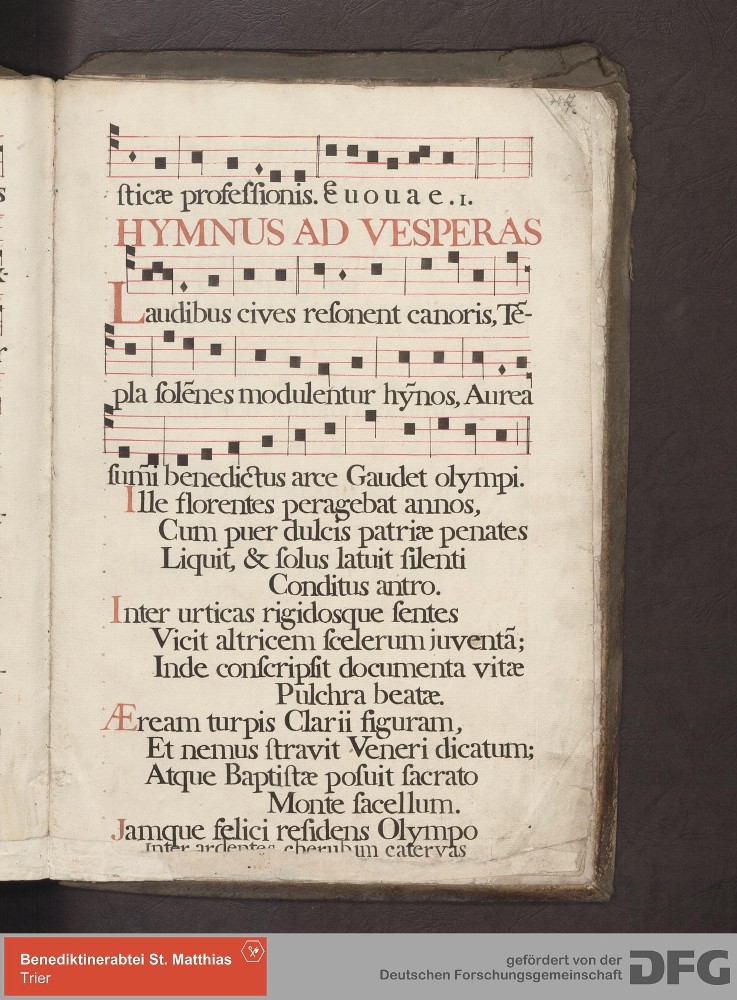 ſticæ profeſſionis. E u o u a e . 1.
HYMNUS AD VESPERAS
Laudibus cives reſonent canoris, Tẽ-
pla ſolẽnes modulentur hỹnos, Aurea
ſum̃i benedictus arce Gaudet olympi.
Ille florentes peragebat annos,
Cum puer dulcis patriæ penates
Liquit, & ſolus latuit ſilenti
Conditus antro.
Inter urticas rigidosque ſentes
Vicit altricem ſcelerum juventã;
Inde conſcripſit documenta vitæ
Pulchra beatæ.
Æream turpis Clarii figuram,
Et nemus ſtravit Veneri dicatum;
Atque Baptiſtæ poſuit ſacrato
Monte ſacellum.
Jamque felici reſidens Olympo
Inter ardentes cherubum catervas
Benediktinerabtei St. Matthias
Trier
gefördert von der
Deutschen Forschungsgemeinschaft
DFG